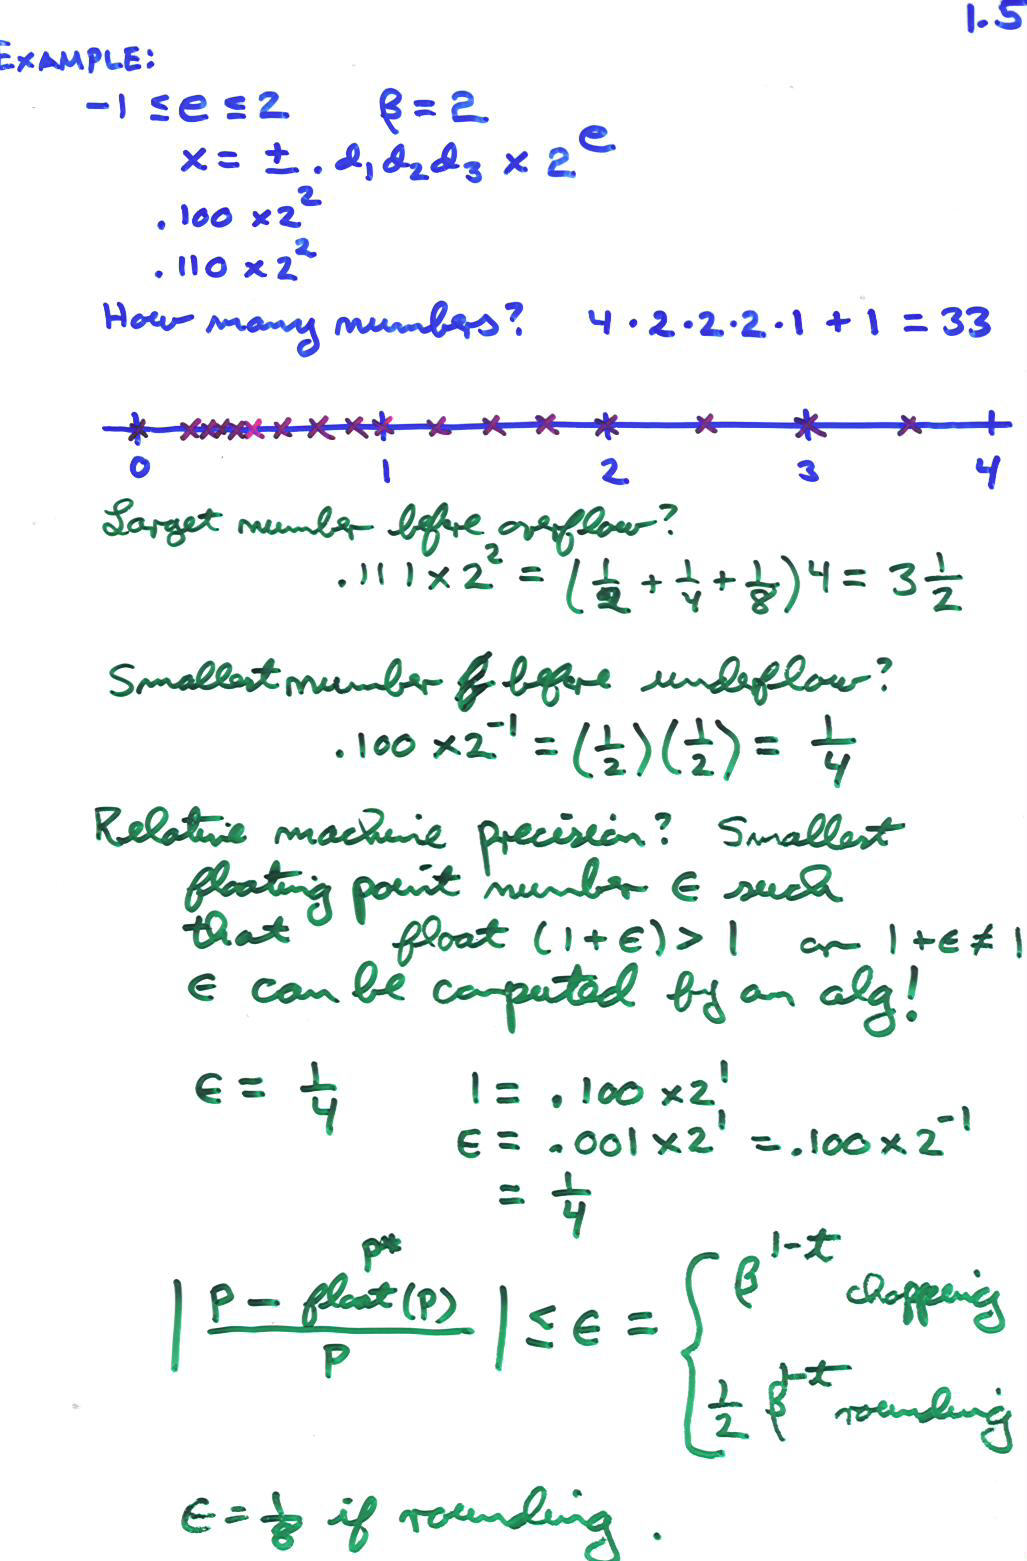 1.5
EXAMPLE:
-1 ≤ e ≤ 2 β = 2
x = ± . d₁ d₂ d₃ × 2^e
.100 × 2²
.110 × 2²
How many numbers? 4 · 2 · 2 · 2 · 1 + 1 = 33
0 1 2 3 4
Larget number before overflow?
.111 × 2² = (1/2 + 1/4 + 1/8) 4 = 3 1/2
Smallest number before underflow?
.100 × 2⁻¹ = (1/2)(1/2) = 1/4
Relative machine precision? Smallest
floating point number ϵ such
that float (1 + ϵ) > 1 or 1 + ϵ ≠ 1
ϵ can be computed by an alg!
ϵ = 1/4 1 = .100 × 2¹
ϵ = .001 × 2¹ = .100 × 2⁻¹
= 1/4
p*
| (P - float(P)) / P | ≤ ϵ = { β^(1-t) chopping
1/2 β^(1-t) rounding
ϵ = 1/8 if rounding.